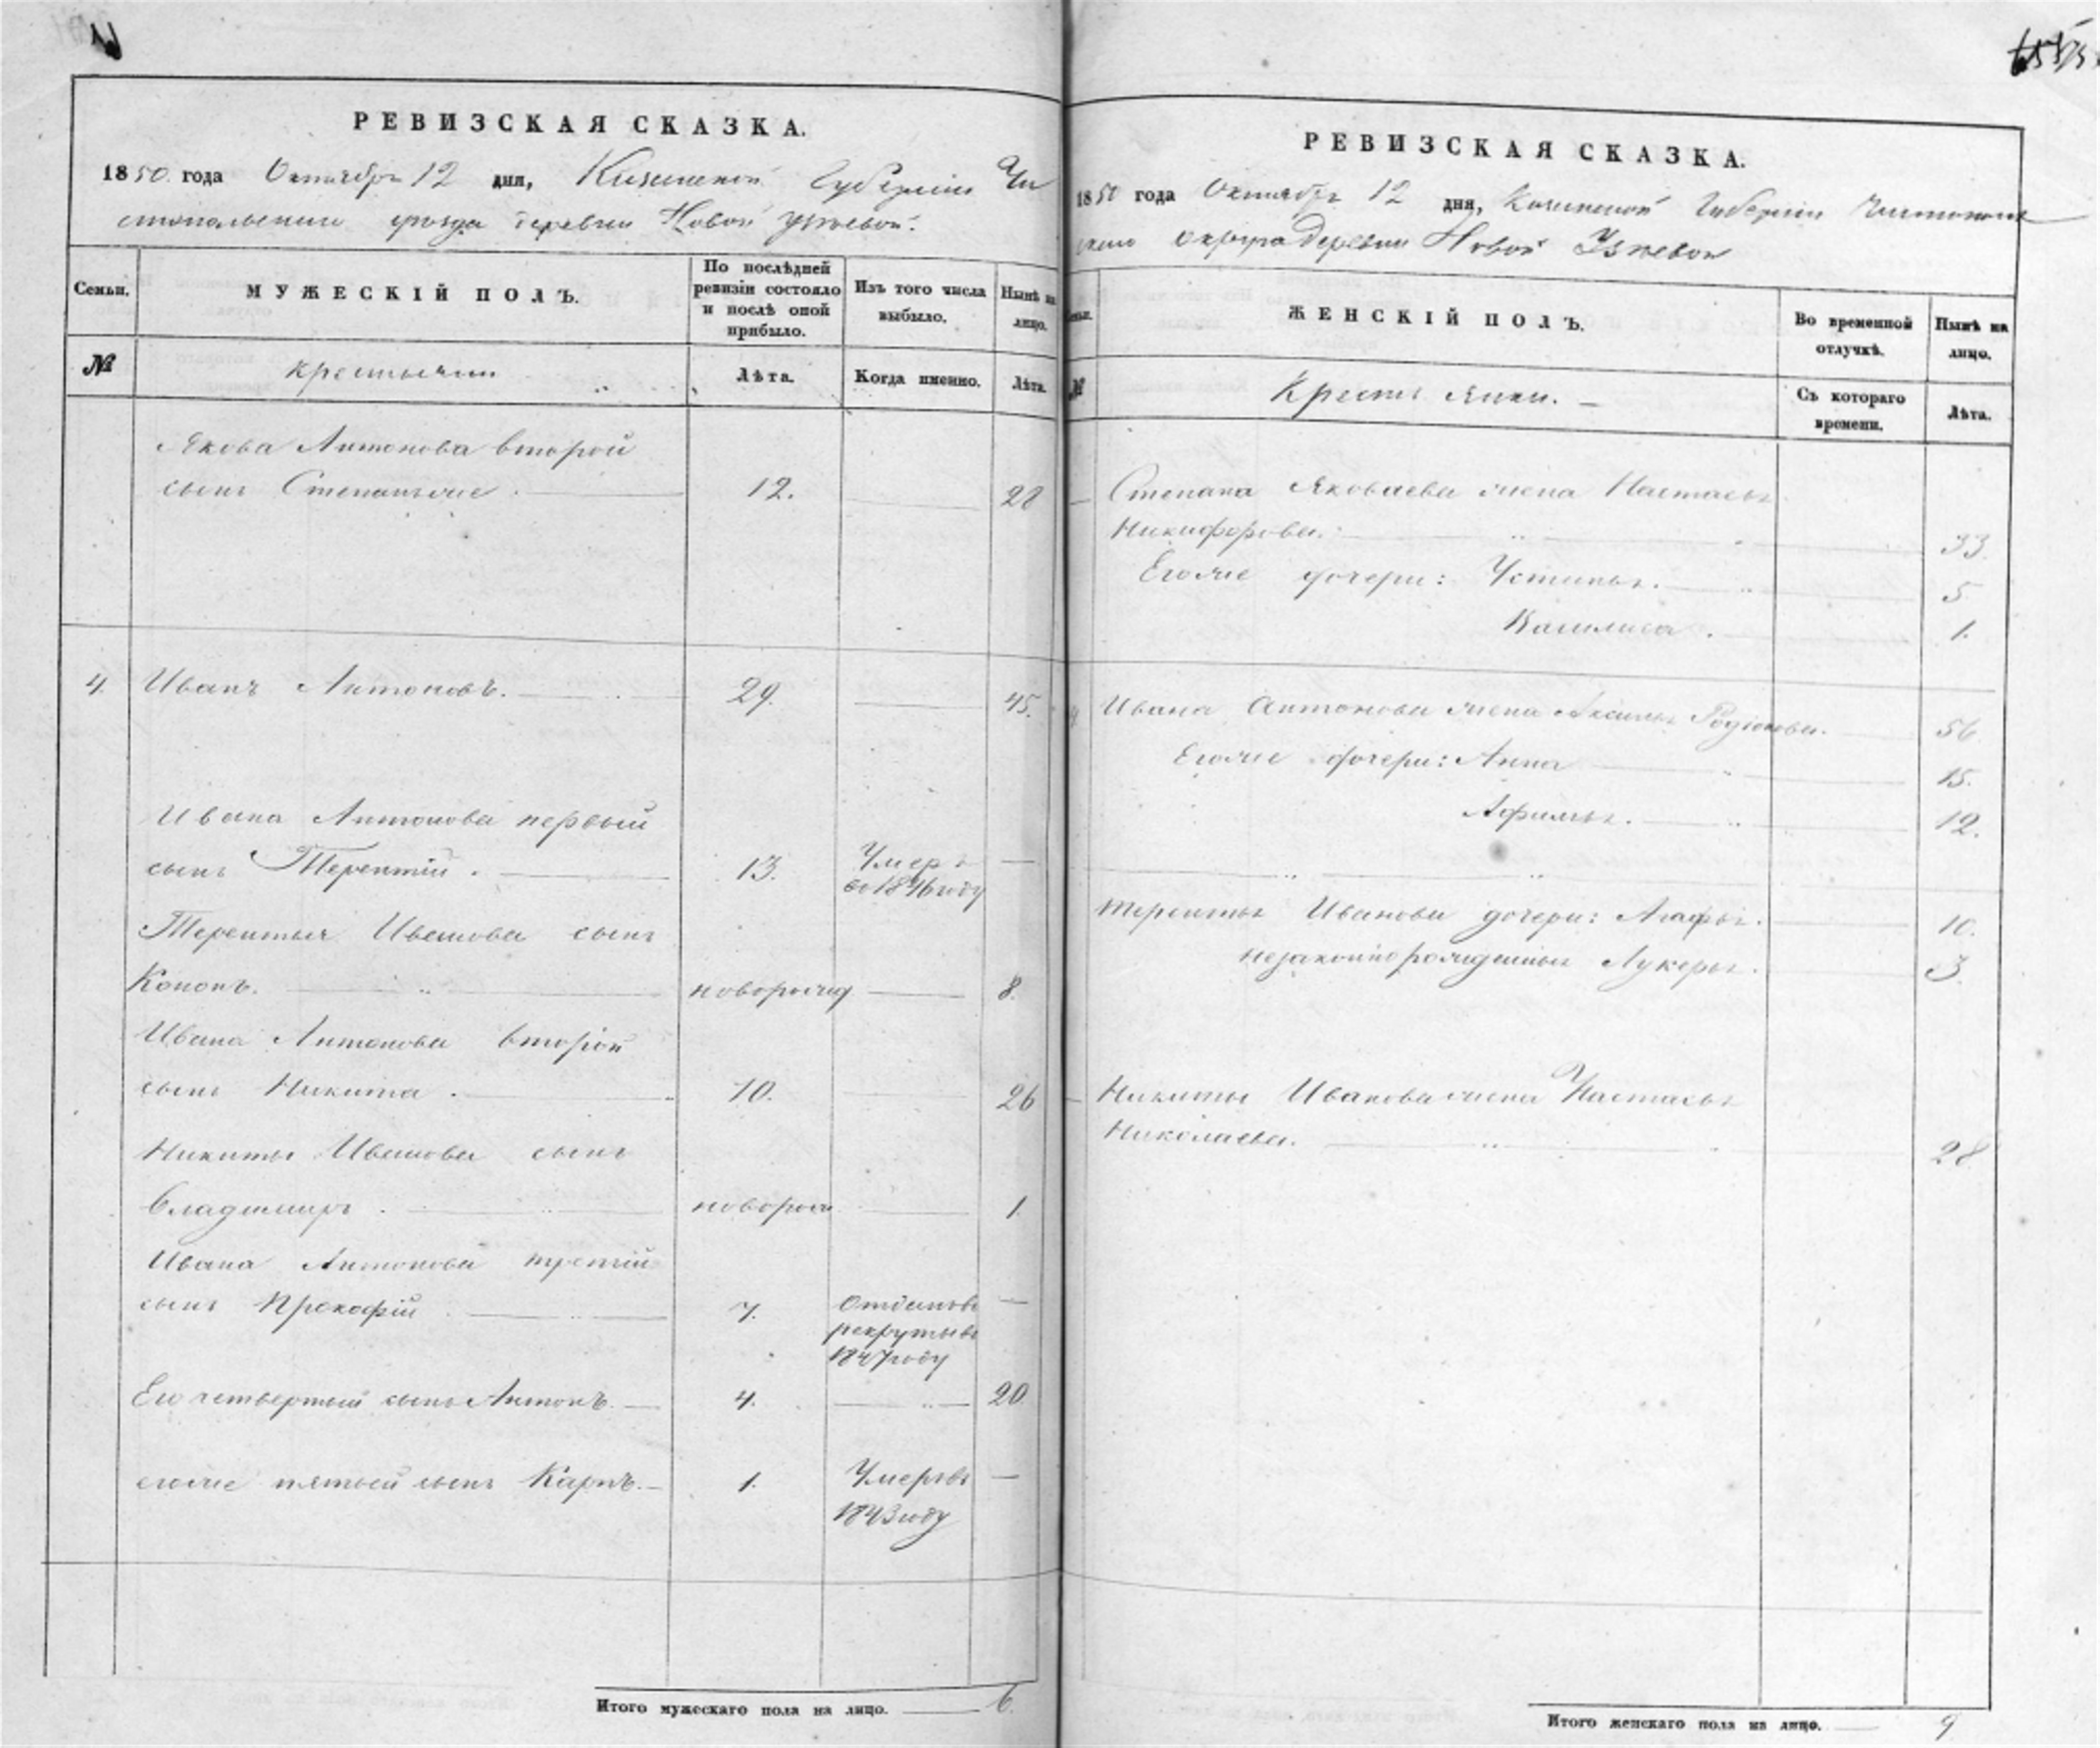 РЕВИЗСКАЯ СКАЗКА.
1850 года Октября 12 дня, Казанской Губернии Чи
стопольского уезда деревни Новой Узеевой.
Семьи.
МУЖЕСКІЙ ПОЛЪ.
По послѣдней ревизіи состояло и послѣ оной прибыло.
Изъ того числа выбыло.
Нынѣ на лицо.
№
крестьяни
Лѣта.
Когда именно.
Лѣта.
Якова Антонова второй
сынъ Степанъже. 12. 28
4. Иванъ Антоновъ. 29. 45.
Ивана Антонова первый
сынъ Терентій. 13. Умеръ
во 1846 году
Терентья Иванова сынъ
Кононъ. новорожд 8.
Ивана Антонова второй
сынъ Никита. 10. 26
Никиты Иванова сынъ
Владимиръ. новорож 1.
Ивана Антонова третій
сынъ Прокофій 7. Отданъ въ
рекруты въ
1847 году
Его четвертый сынъ Антонъ. 4. 20
егоже пятый сынъ Карпъ. 1. Умеръ въ
1843 году
Итого мужескаго пола на лицо. 6.
РЕВИЗСКАЯ СКАЗКА.
1850 года Октября 12 дня, Казанской Губерніи Чистополь
скаго округа деревни Новой Узеевой
Семьи.
ЖЕНСКІЙ ПОЛЪ.
Во временной отлучкѣ.
Нынѣ на лицо.
№
Крестьянки.
Съ котораго времени.
Лѣта.
Степана Яковлева жена Настасья
Никифорова. 33.
Егоже дочери: Устинья. 5
Василиса. 1.
4 Ивана Антонова жена Аксинья Родіонова. 56
Егоже дочери: Анна 15.
Афимья. 12.
Терентья Иванова дочери: Агафья. 10.
незаконнорожденная Лукерья. 3.
Никиты Иванова жена Настасья
Николаева. 28
Итого женскаго пола на лицо. 9